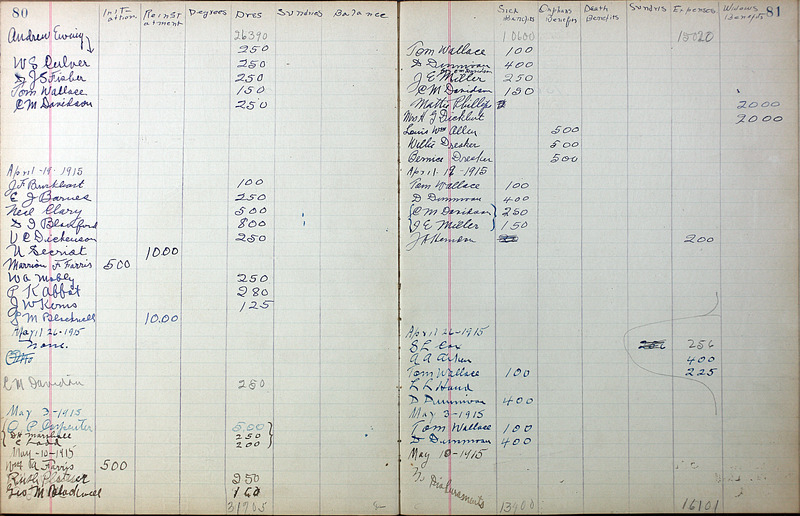 80
Initiation Reinstatement Degrees Dues Sundries Balance
26390
Andrew Ewing 250
W S Culver 250
D J S Fisher 250
Tom Wallace 150
C M Davidson 250
April-19-1915
J F Burkhart 100
E J Barnes 250
Neil Clary 500
S J Blackford 800
V C Dickenson 250
N Secrist 1000
Marrion F Farris 500
W A Mobly 250
P K Abbot 280
J W Kerns 125
J M Blackwell 1000
April 26-1915
None.
C M Davidson 250
May 3-1915
O P Carpenter 500
D H Marshall 250
C Ladd 200
May-10-1915
Wm M Farris 500
Ruth Platner 250
Geo M Blackwell 160
31705
81
Sick Benefits Orphans Benefits Death Benefits Sundris Expenses Widows Benefits
10600 15020
Tom Wallace 100
D Dunnivan 400
J E Miller 250
C M Davidson 150
Mattie Phillips 2000
Mrs H J Dickhut 2000
Louis Wm Allen 500
Willie Dresher 500
Bernice Dresher 500
April-19-1915
Tom Wallace 100
D Dunnivan 400
C M Davidson 250
J E Miller 150
J A Hemson 200
April 26-1915
S L Cox 256
A A Arher 400
Tom Wallace 100 225
L L Hand
D Dunnivan 400
May 3-1915
Tom Wallace 100
D Dunnivan 400
May 10-1915
No Disbursments
13900 16101